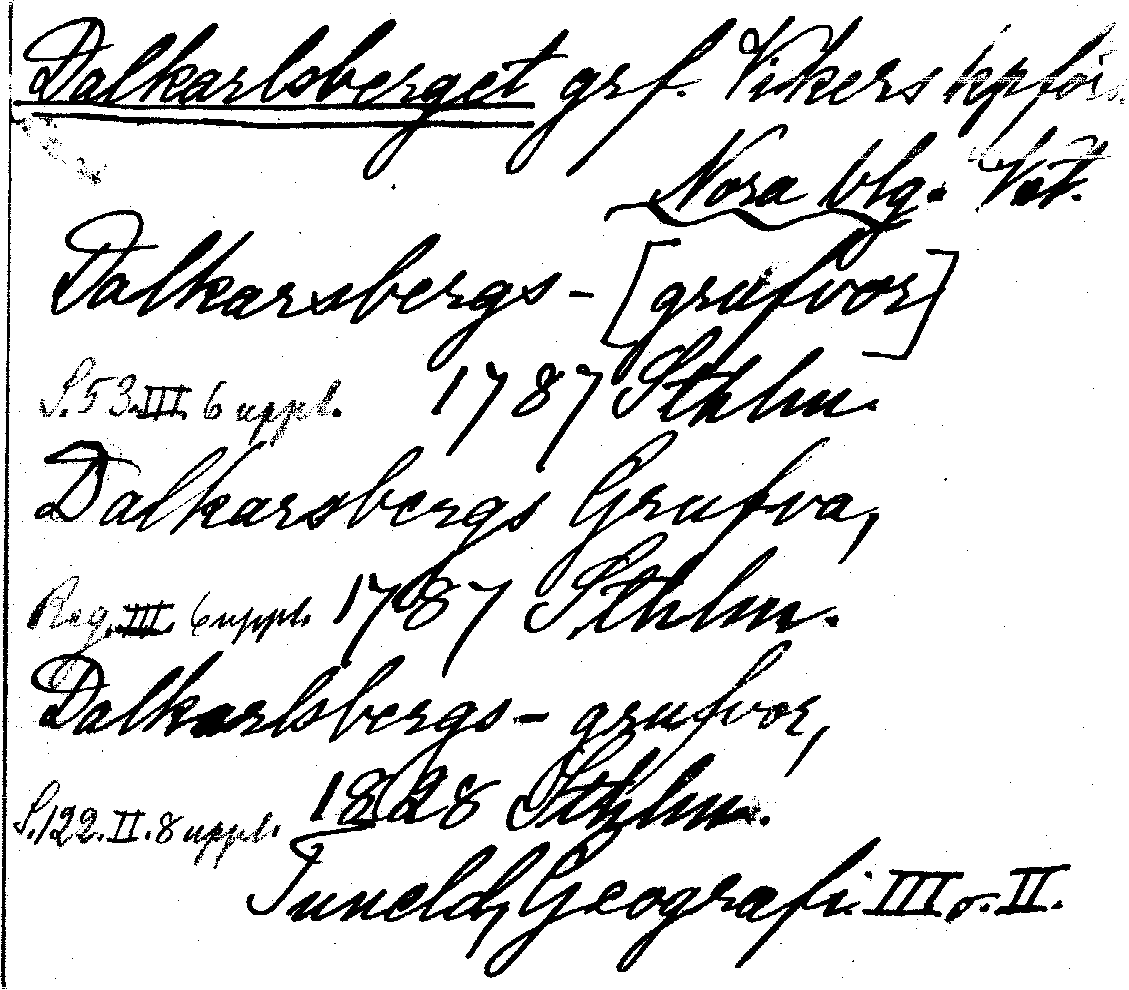 Dalkarlsberget grf. Vikers kpförs.
Nora blg. Vst.
Dalkarsbergs-[grufvor]
S.53.III. 6 uppl. 1787 Sthlm.
Dalkarsbergs Grufva,
Reg. III. 6 uppl. 1787 Sthlm.
Dalkarlsbergs-grufvor,
S.122.II.8 uppl. 1828 Sthlm.
Tuneld, Geografi III o. II.